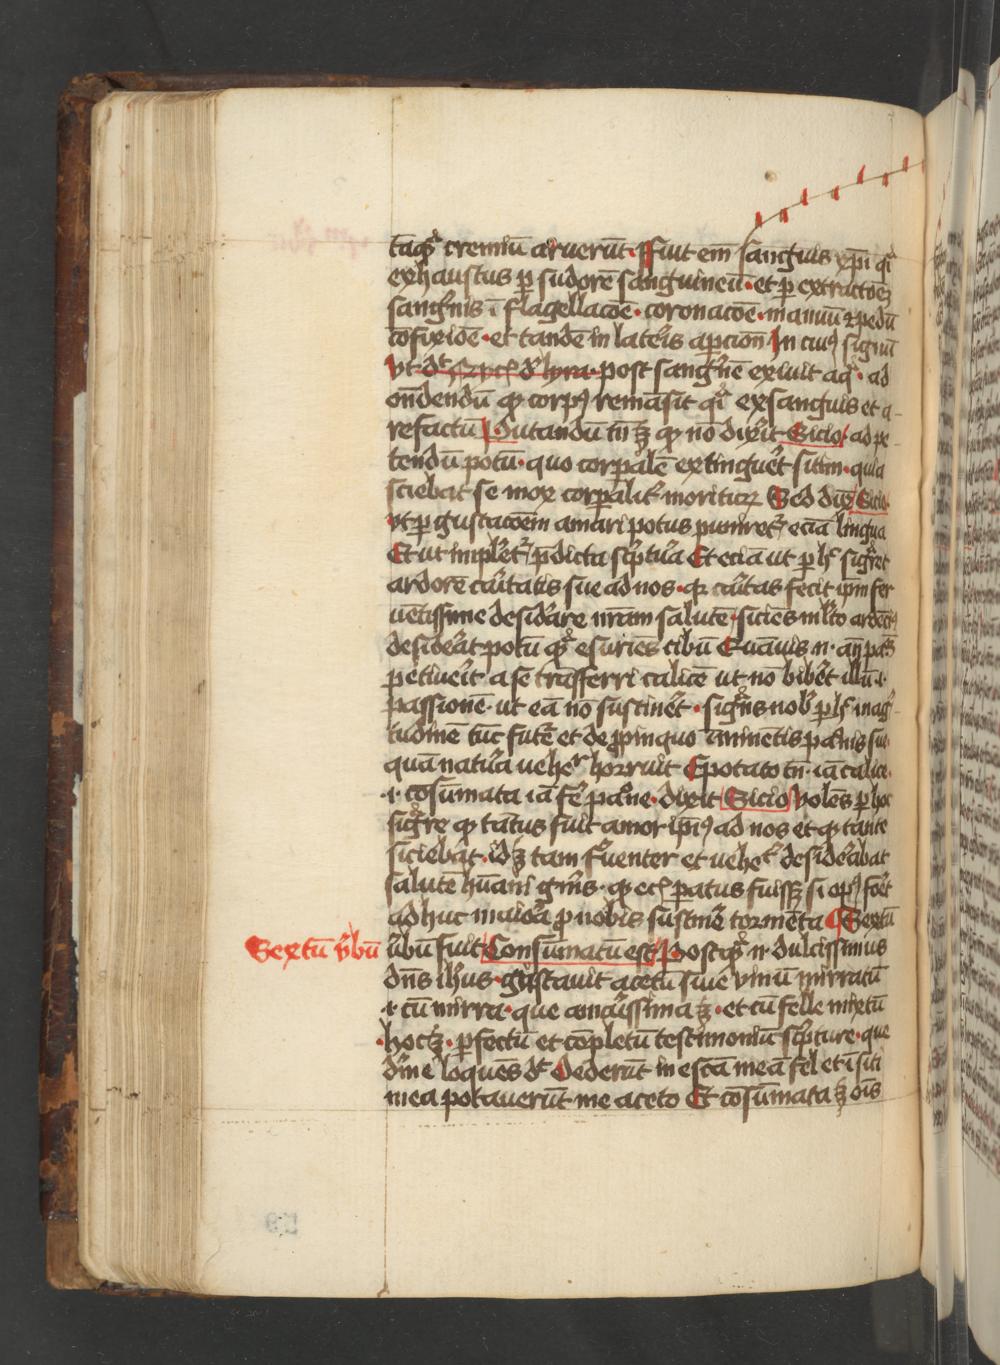 tāqꝫ cremiū aruerūt. Fuit em̄ sanguis xp̄i q̄i
exhaustus ꝑ sudorē sanguineū. et ꝑ extractōeꝫ
sangⁱnis ī flagellacōe. coronacōe. manuū ⁊ pedū
cōfixiōe. et tandē in lateris apcion̄ In cuiꝰ signū
vt dt̄ lyra. post sangⁱnē exiuit aqᵃ. ad
on̄dendū ꝙ corpꝰ remāsit qⁱ exsanguis et a-
refactū Putandū tn̄ ꝫ ꝙ nō dixit Sicio ad pe-
tendū potū. quo corpalē extingueret sitim. quia
sciebat se mox corpalit̉ moriturꝫ Sed dixit Sicio
vt ꝑ gustacōem amari potus puniret̉ eciā lingua
Et ut implet̉ p̄dicta scptu̾a Et eciā ut ꝑ hᶜ sigͣret
ardorē caritatis sue ad nos. qꝛ caritas fecit ip̄m fer
uētissime desidare nr̄am salutē. siciēs ml̾to ardēcꝰ
desiderat potū qᵃ esuriēs cibū Quāuis n. an̄ pass̄
petiuerit a se trāsferri calicē ut nō bibet illū .i.
passionē. ut eā nō sustinet. sigͣns nob̾ ꝑ hᶜ mag̾-
tudinē tūc futē et de ꝓpinquo īminētis penis sue
quā natu̾a uehe̾ horruit Epotato tn̄. iā calice
.i. cōsūmata iā fe̾ pene. dixit Sicio volēs ꝑ hoc
sigͣre ꝙ tātus fuit amor ip̄iꝰ ad nos et ꝙ tante
siciebat. idꝫ tam feruenter et uehet̾ desiderabat
salutē hūani gn̄is. ꝙ ecꝫ paratus fuissꝫ si opꝰ foēt
adhuc maiora ꝓ nobis sustinē tormēta Sextū
Sextū v̾bū
v̾bū fuit Consūmatū est Postꝗᵃ n. dulcissimus
dn̄s ih̄us. gustauit acetū siue vinū mirratū
.i. cū mirra. que amarissima ꝫ. et cū felle mixtū
hoc ꝫ. ꝑfectū et cōpletū testimoniū scpture. que
d̾me loquēs dt̄ Dederūt in escā meā fel et ī siti
mea potauerūt me aceto Et cōsūmata ꝫ oīs